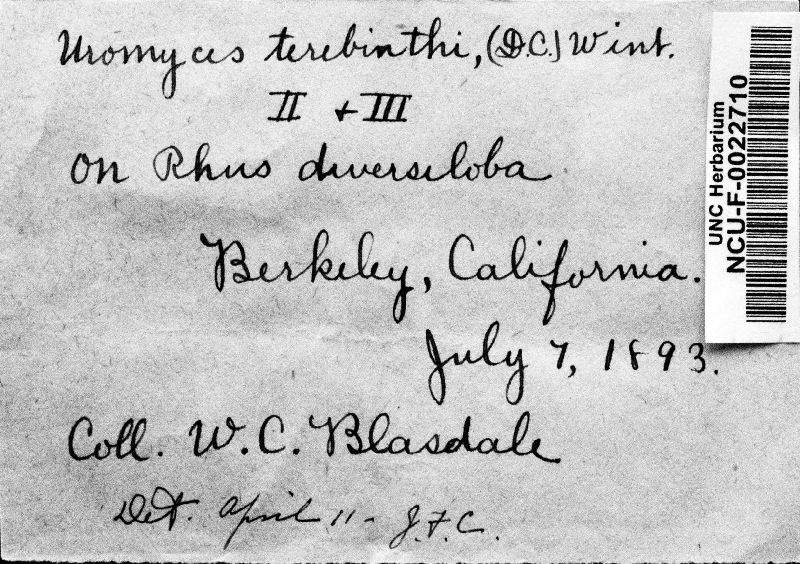 Uromyces terebinthi, (D.C.) Wint.
II + III
on Rhus diversiloba
Berkeley, California.
July 7, 1893.
Coll. W. C. Blasdale
Det. April 11 - J.F.C.
UNC Herbarium
NCU-F-0022710